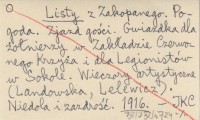 O
Listy z Zakopanego. Po-
goda. Zjazd gości. Gwiazdka dla
żołnierzy w Zakładzie Czerwo-
nego Krzyża i dla Legionistów
w Sokole. Wieczory artystyczne
(Landowska, Lelewicz).
Niedola i zazdrość. 1916. – JKC